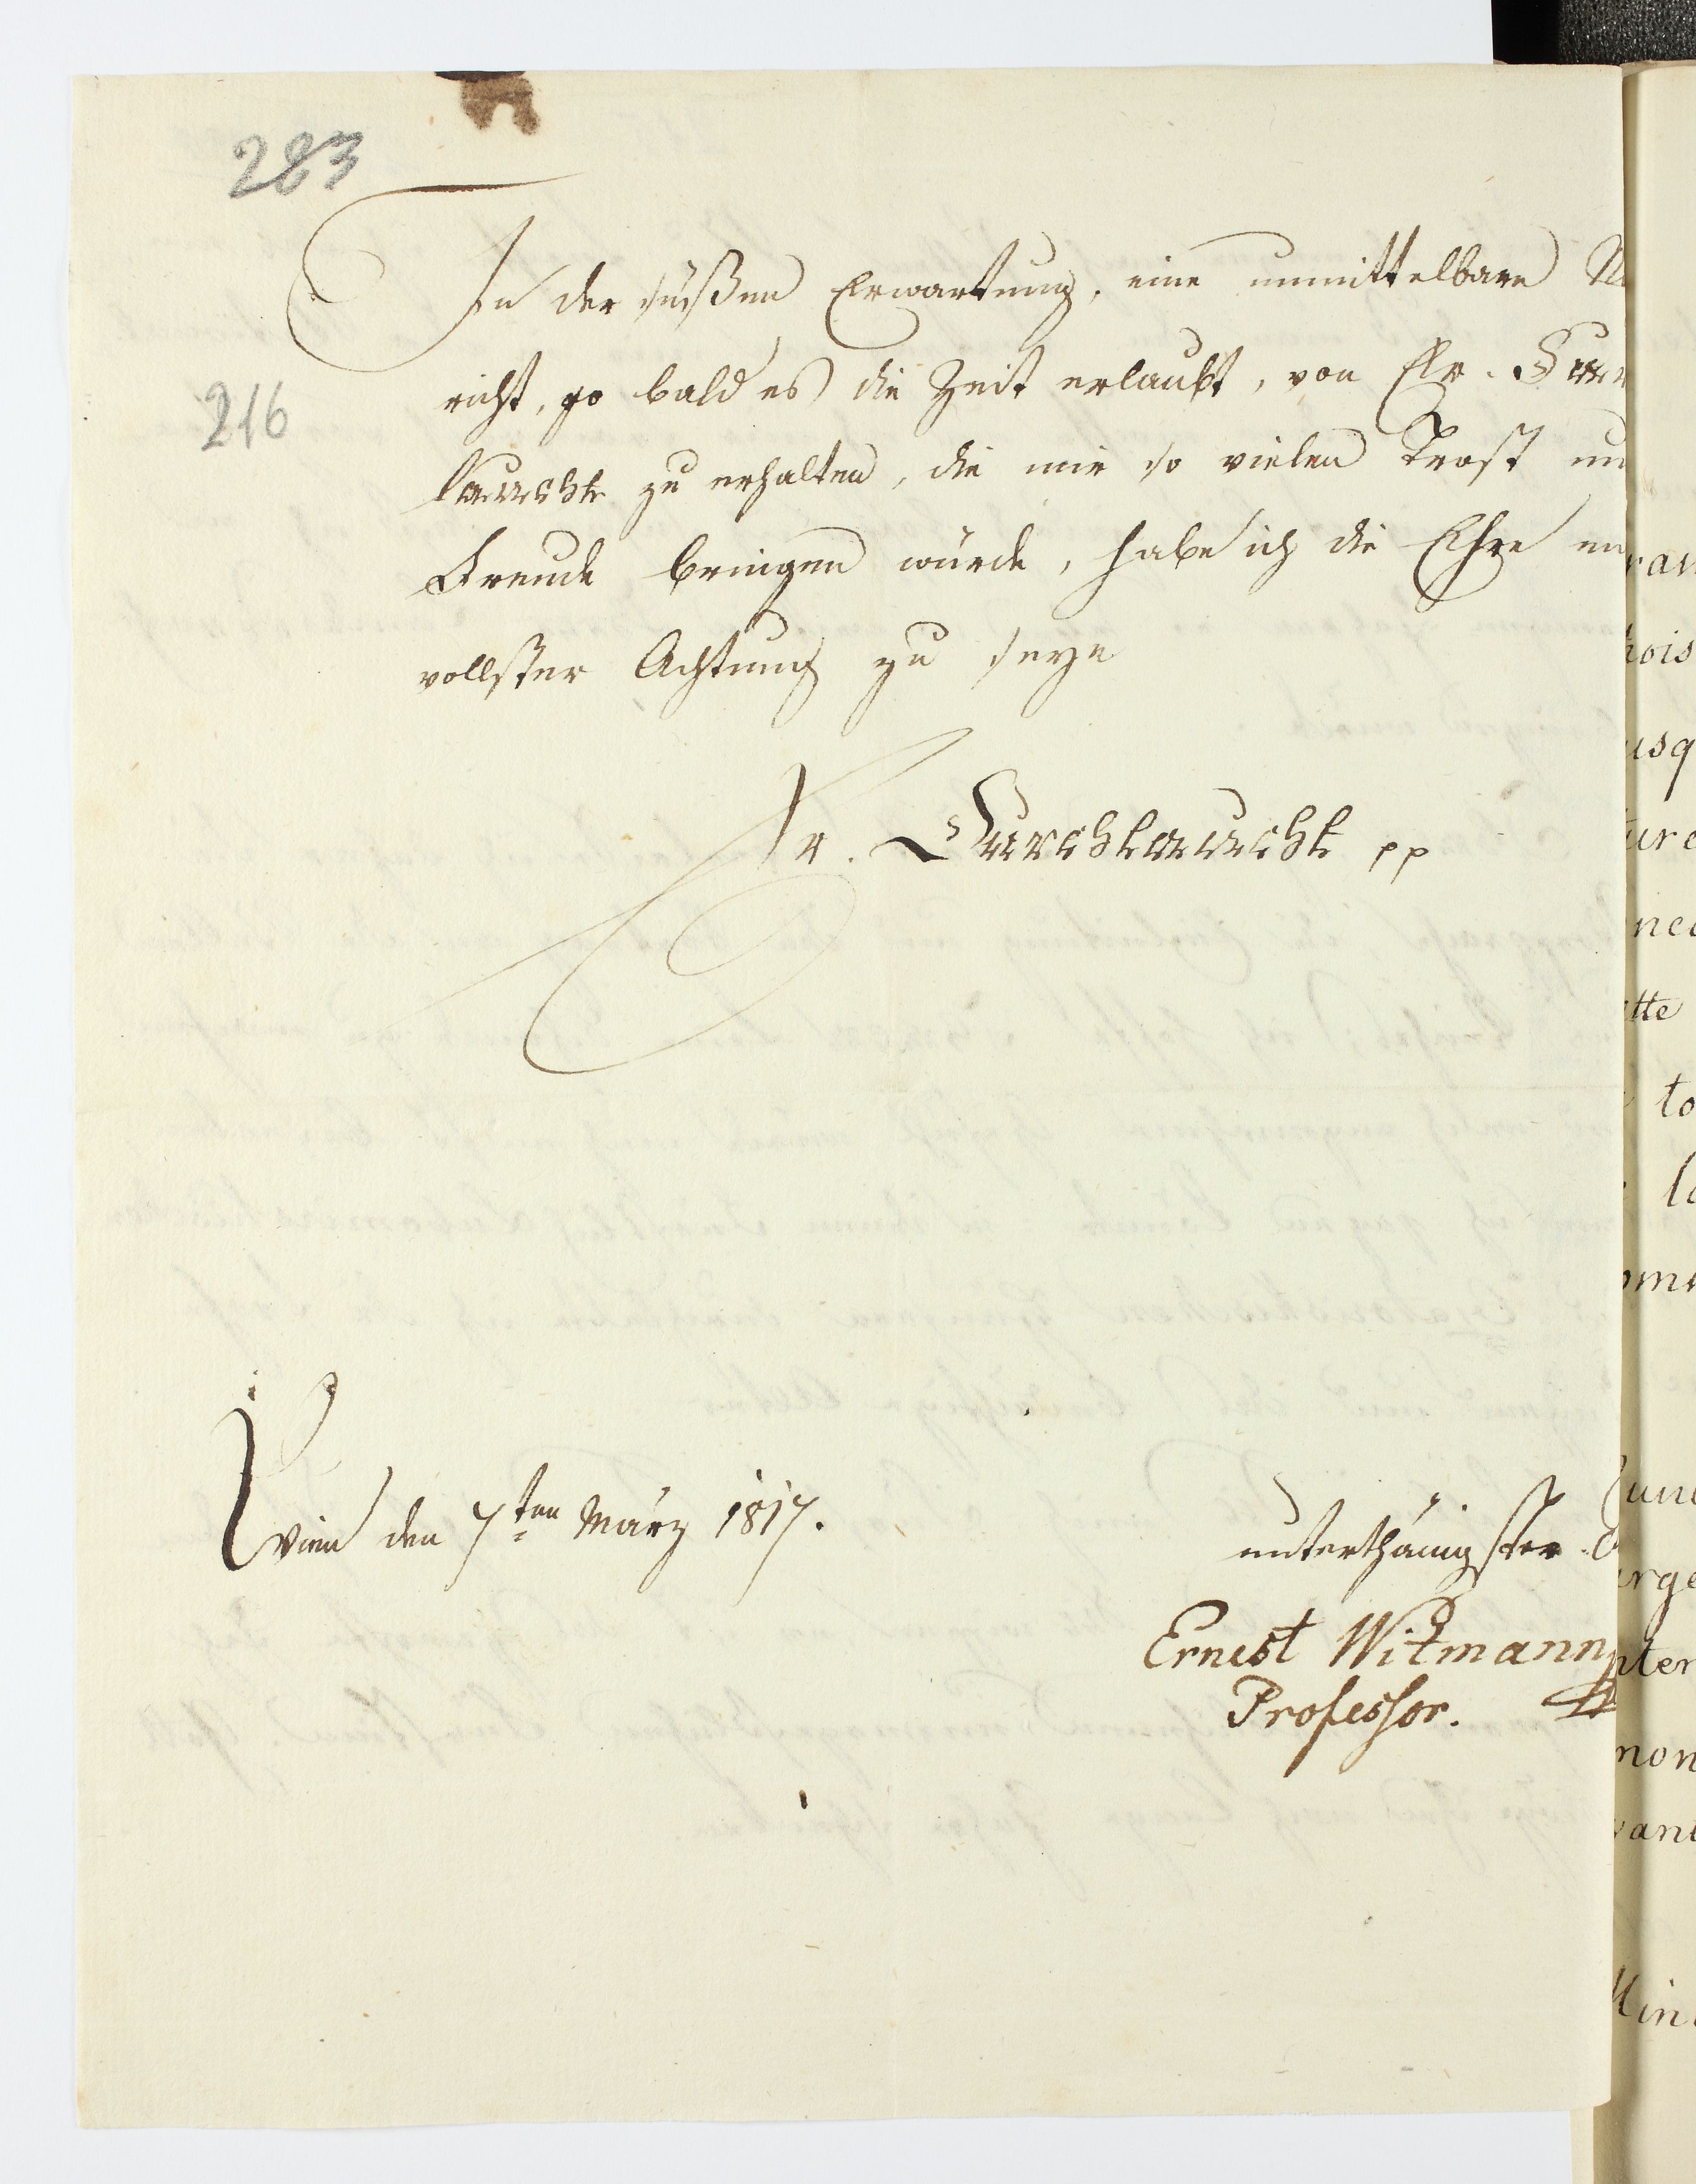 283
In der süßen Erwartung, eine unmittelbare
richt, so bald es die Zeit erlaubt, von Er. Dur
216
laucht zu erhalten, die mir so vielen Trost un
Freude bringen würde, habe ich die Ehre
vollster Achtung zu seyn
Er. Durchlaucht pp
Wien den 7ten März 1817.
unterthänigster
Ernest Witmann
Professor.